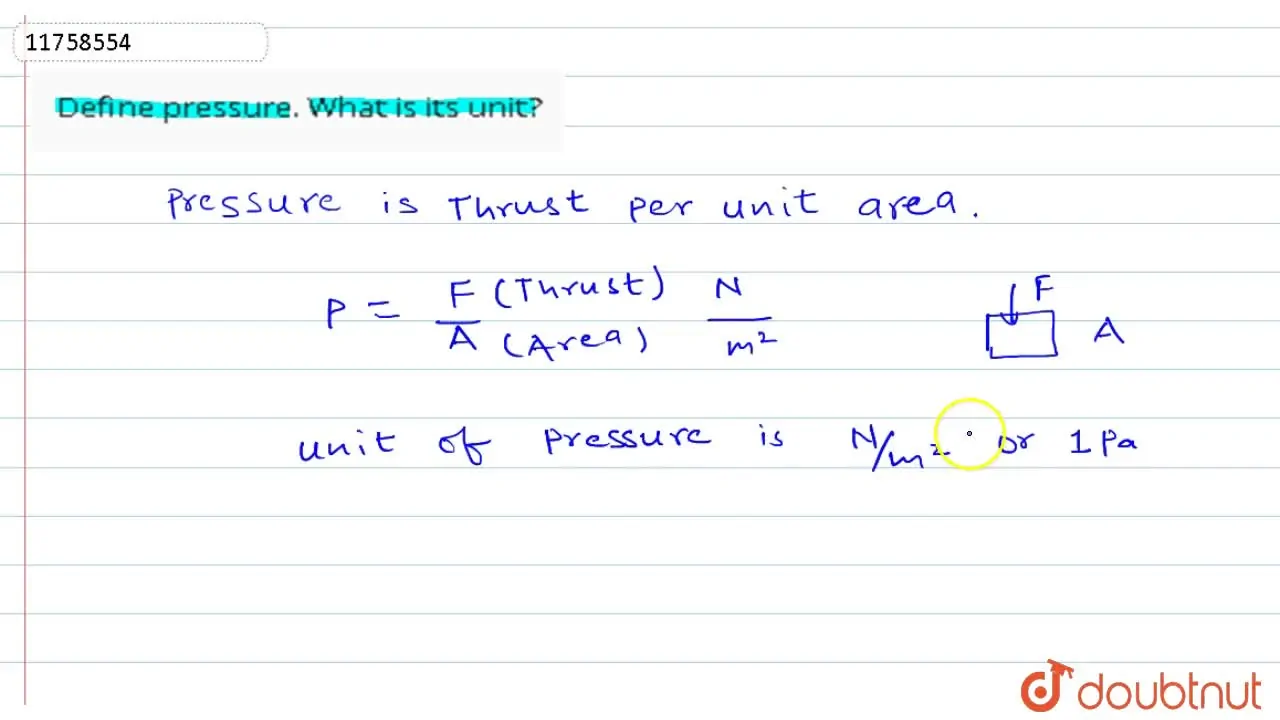 11758554
Define pressure. What is its unit?
Pressure is Thrust per unit area.
P = F (Thrust) / A (Area) N / m²
F
A
unit of pressure is N/m² or 1 Pa
doubtnut